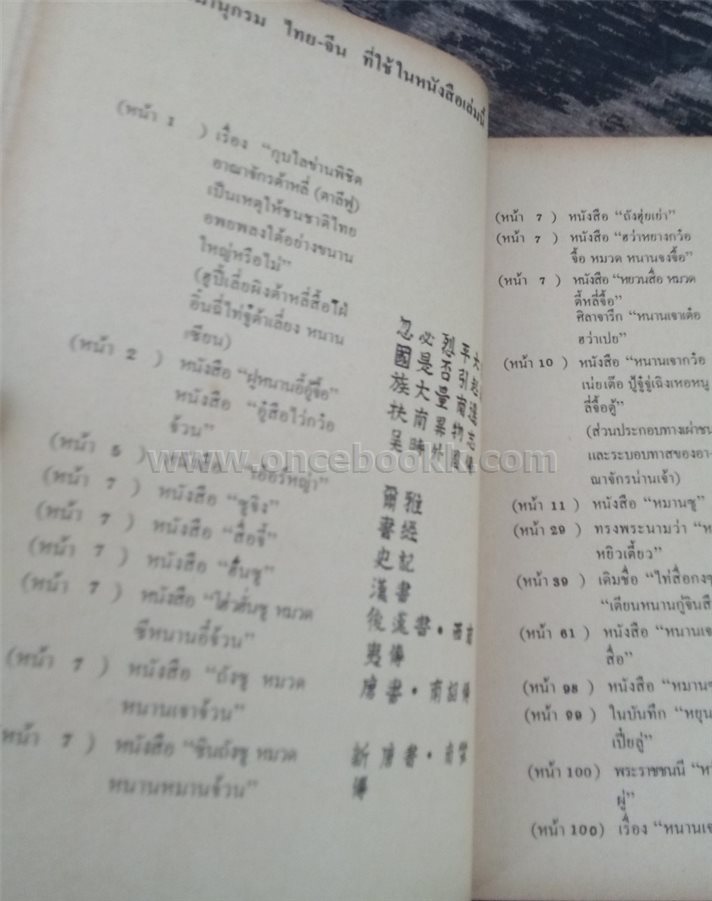 านุกรม ไทย-จีน ที่ใช้ในหนังสือเล่มนี้
(หน้า 1 ) เรื่อง “กุบไลข่านพิชิต
อาณาจักรต้าหลี่ (ตาลีฟู)
เป็นเหตุให้ชนชาติไทย
อพยพลงใต้อย่างขนาน
ใหญ่หรือไม่”
(ฮูปี้เลี่ยผิงต้าหลี่สื้อไฝ่
อิ้นฉี่ไท่จู๋ต้าเลี่ยง หนาน
เซียน)
忽必烈平大
國是否引起
族大量南遷
(หน้า 2 ) หนังสือ “ฝูหนานอี้อู้จื้อ”
扶南異物志
หนังสือ “อู๋สือไว่กว๋อ
จ้วน”
吳時外國傳
(หน้า 5 ) หนังสือ “เอ๋อร์หญ่า”
爾雅
(หน้า 7 ) หนังสือ “ซูจิง”
書經
(หน้า 7 ) หนังสือ “สื่อจี้”
史記
(หน้า 7 ) หนังสือ “ฮั่นซู”
漢書
(หน้า 7 ) หนังสือ “โฮ่วฮั่นซู หมวด
ซีหนานอี๋จ้วน”
後漢書・西南
夷傳
(หน้า 7 ) หนังสือ “ถังซู หมวด
หนานเจาจ้วน”
唐書・南詔傳
(หน้า 7 ) หนังสือ “ซินถังซู หมวด
หนานหมานจ้วน”
新唐書・南蠻
傳
(หน้า 7 ) หนังสือ “ถังฮุ่ยเย่า”
(หน้า 7 ) หนังสือ “ฮว๋าหยางกว๋อ
จื้อ หมวด หนานจงจื้อ”
(หน้า 7 ) หนังสือ “หยวนสื่อ หมวด
ตี้หลี่จื้อ”
ศิลาจารึก “หนานเจาเต๋อ
ฮว่าเปย”
(หน้า 10 ) หนังสือ “หนานเจากว๋อ
เน่ยเตอ ปู้จู๋จู่เฉิงเหอหนู
ลี่จื้อตู้”
(ส่วนประกอบทางเผ่าชน
และระบอบทาสของอา-
ณาจักรน่านเจ้า)
(หน้า 11 ) หนังสือ “หมานซู”
(หน้า 29 ) ทรงพระนามว่า “ห
หยิวเตี้ยว”
(หน้า 39 ) เดิมชื่อ “ไท่สื่อกงซ
“เตียนหนานกู่จินสื
(หน้า 61 ) หนังสือ “หนานเจ
สื่อ”
(หน้า 98 ) หนังสือ “หมานซ
(หน้า 99 ) ในบันทึก “หยุน
เปี้ยลู่”
(หน้า 100) พระราชชนนี “ห
ผู่”
(หน้า 100) เรื่อง “หนานเจ
www.oncebookh.com